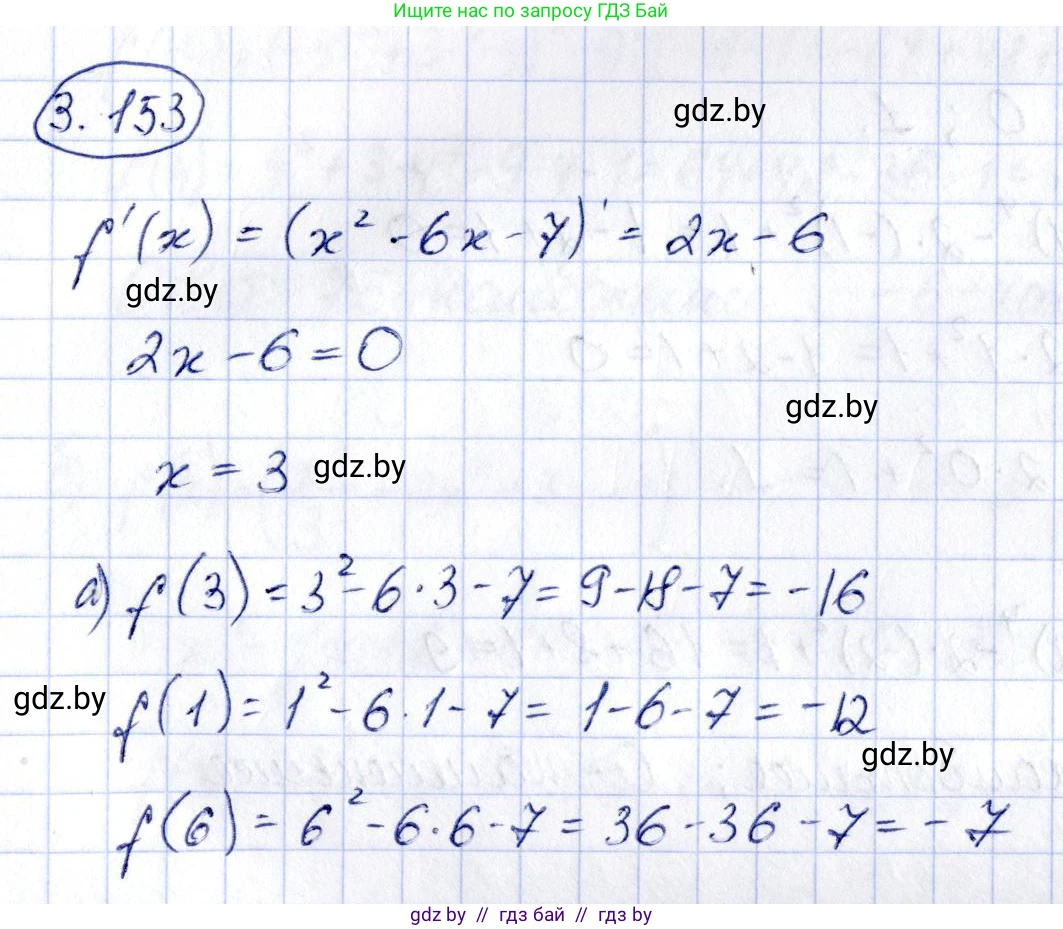 Ищите нас по запросу ГДЗ Бай
3.153
gdz.by
f'(x) = (x² - 6x - 7)' = 2x - 6
gdz.by
2x - 6 = 0
gdz.by
x = 3 gdz.by
а) f(3) = 3² - 6·3 - 7 = 9 - 18 - 7 = -16
gdz.by f(1) = 1² - 6·1 - 7 = 1 - 6 - 7 = -12
gdz.by
f(6) = 6² - 6·6 - 7 = 36 - 36 - 7 = -7
gdz.by // гдз бай // гдз by